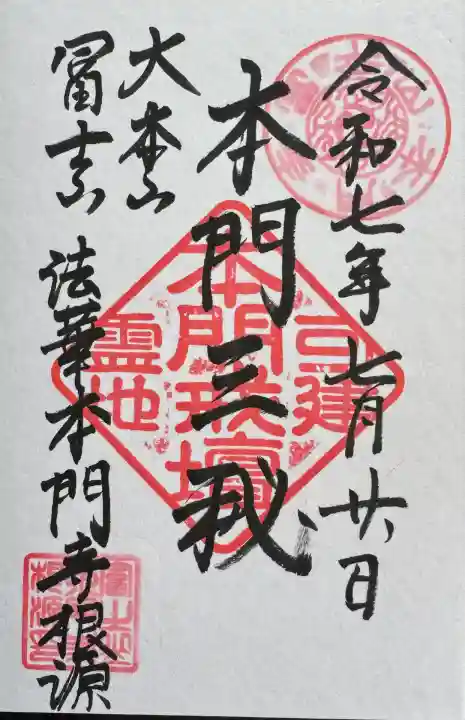 令和七年七月廿日
本門三秘
可建
本門戒壇
霊地
大本山
冨士山
法華本門寺根源